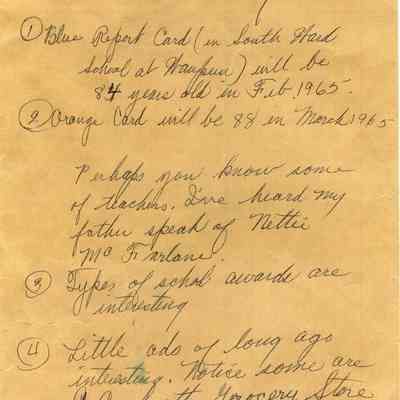 ① Blue Report Card (in South Ward
school at Waupun) will be
84 years old in Feb 1965.
② Orange Card will be 88 in March 1965
Perhaps you know some
of teachers. I've heard my
father speak of Nettie
Mc Farlane.
③ Types of schol awards are
interesting
④ Little ads of long ago
interesting. Notice some are
Grocery Store